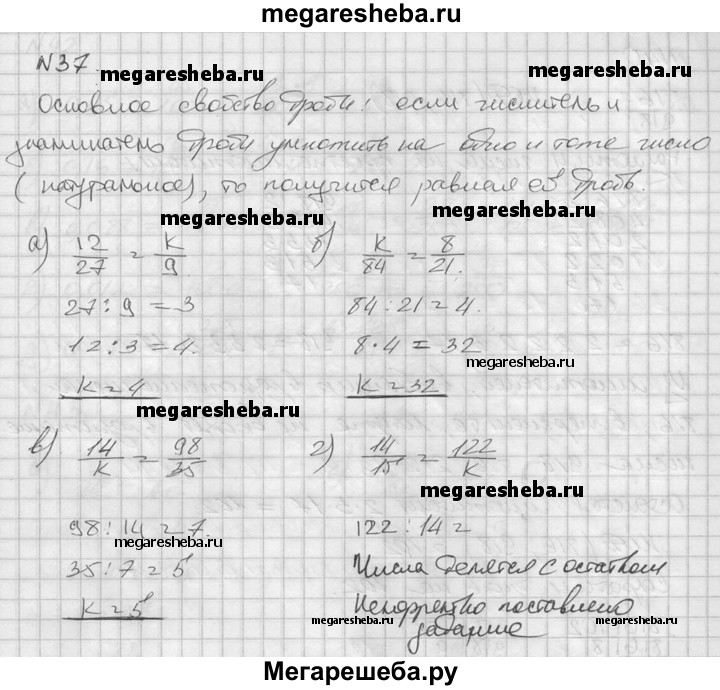 megaresheba.ru
N37
megaresheba.ru megaresheba.ru
Основное свойство дроби: если числитель и
знаминатель дроби умножить на одно и тоже число
(натуральное), то получится равная ей дробь.
megaresheba.ru megaresheba.ru
а) 12/27 = k/9 б) k/84 = 8/21.
27 : 9 = 3 84 : 21 = 4.
12 : 3 = 4. 8 · 4 = 32
megaresheba.ru
k = 4 k = 32
megaresheba.ru
в) 14/k = 98/35 г) 14/15 = 122/k
megaresheba.ru
98 : 14 = 7. 122 : 14 =
megaresheba.ru
35 : 7 = 5 Числа делятся с остатком
k = 5 Некорректно поставлено
megaresheba.ru megaresheba.ru
задание
Мегарешеба.ру